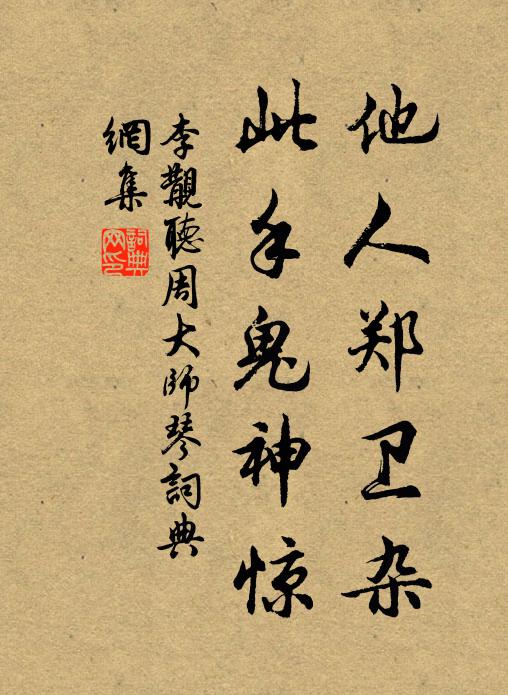 他人郑卫杂
此手鬼神惊
李觏聽周大师琴詞典
網集
詞典
网印